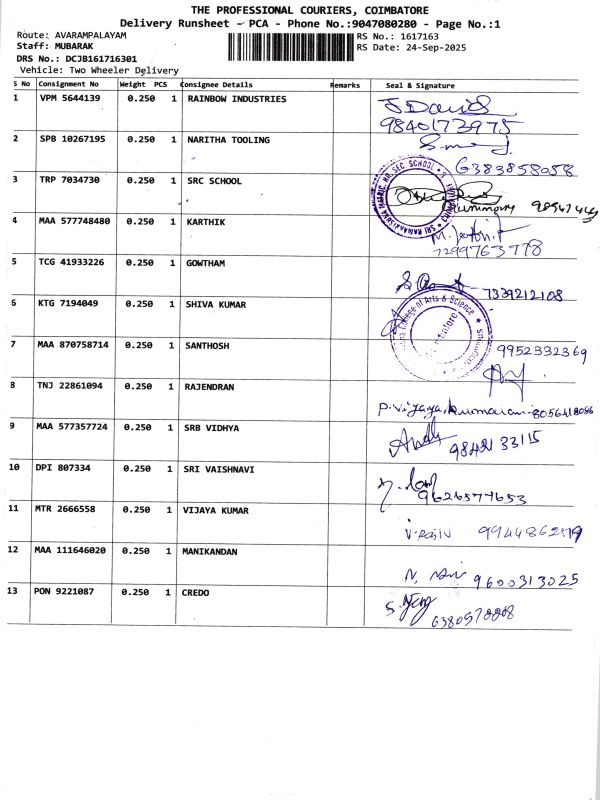 THE PROFESSIONAL COURIERS, COIMBATORE
Delivery Runsheet - PCA - Phone No.:9047080280 - Page No.:1
Route: AVARAMPALAYAM RS No.: 1617163
Staff: MUBARAK RS Date: 24-Sep-2025
DRS No.: DCJB161716301
Vehicle: Two Wheeler Delivery
S No Consignment No Weight PCS Consignee Details Remarks Seal & Signature
1 VPM 5644139 0.250 1 RAINBOW INDUSTRIES J. David
9840173975
2 SPB 10267195 0.250 1 NARITHA TOOLING
6383858058
3 TRP 7034730 0.250 1 SRC SCHOOL
4 MAA 577748480 0.250 1 KARTHIK
7299763778
5 TCG 41933226 0.250 1 GOWTHAM
7339212108
6 KTG 7194049 0.250 1 SHIVA KUMAR College of Arts & Science
7 MAA 870758714 0.250 1 SANTHOSH 9952332369
8 TNJ 22861094 0.250 1 RAJENDRAN
P. Vijaya kumaran
9 MAA 577357724 0.250 1 SRB VIDHYA 98421 33115
10 DPI 807334 0.250 1 SRI VAISHNAVI
9626577653
11 MTR 2666558 0.250 1 VIJAYA KUMAR
12 MAA 111646020 0.250 1 MANIKANDAN
9600313025
13 PON 9221087 0.250 1 CREDO